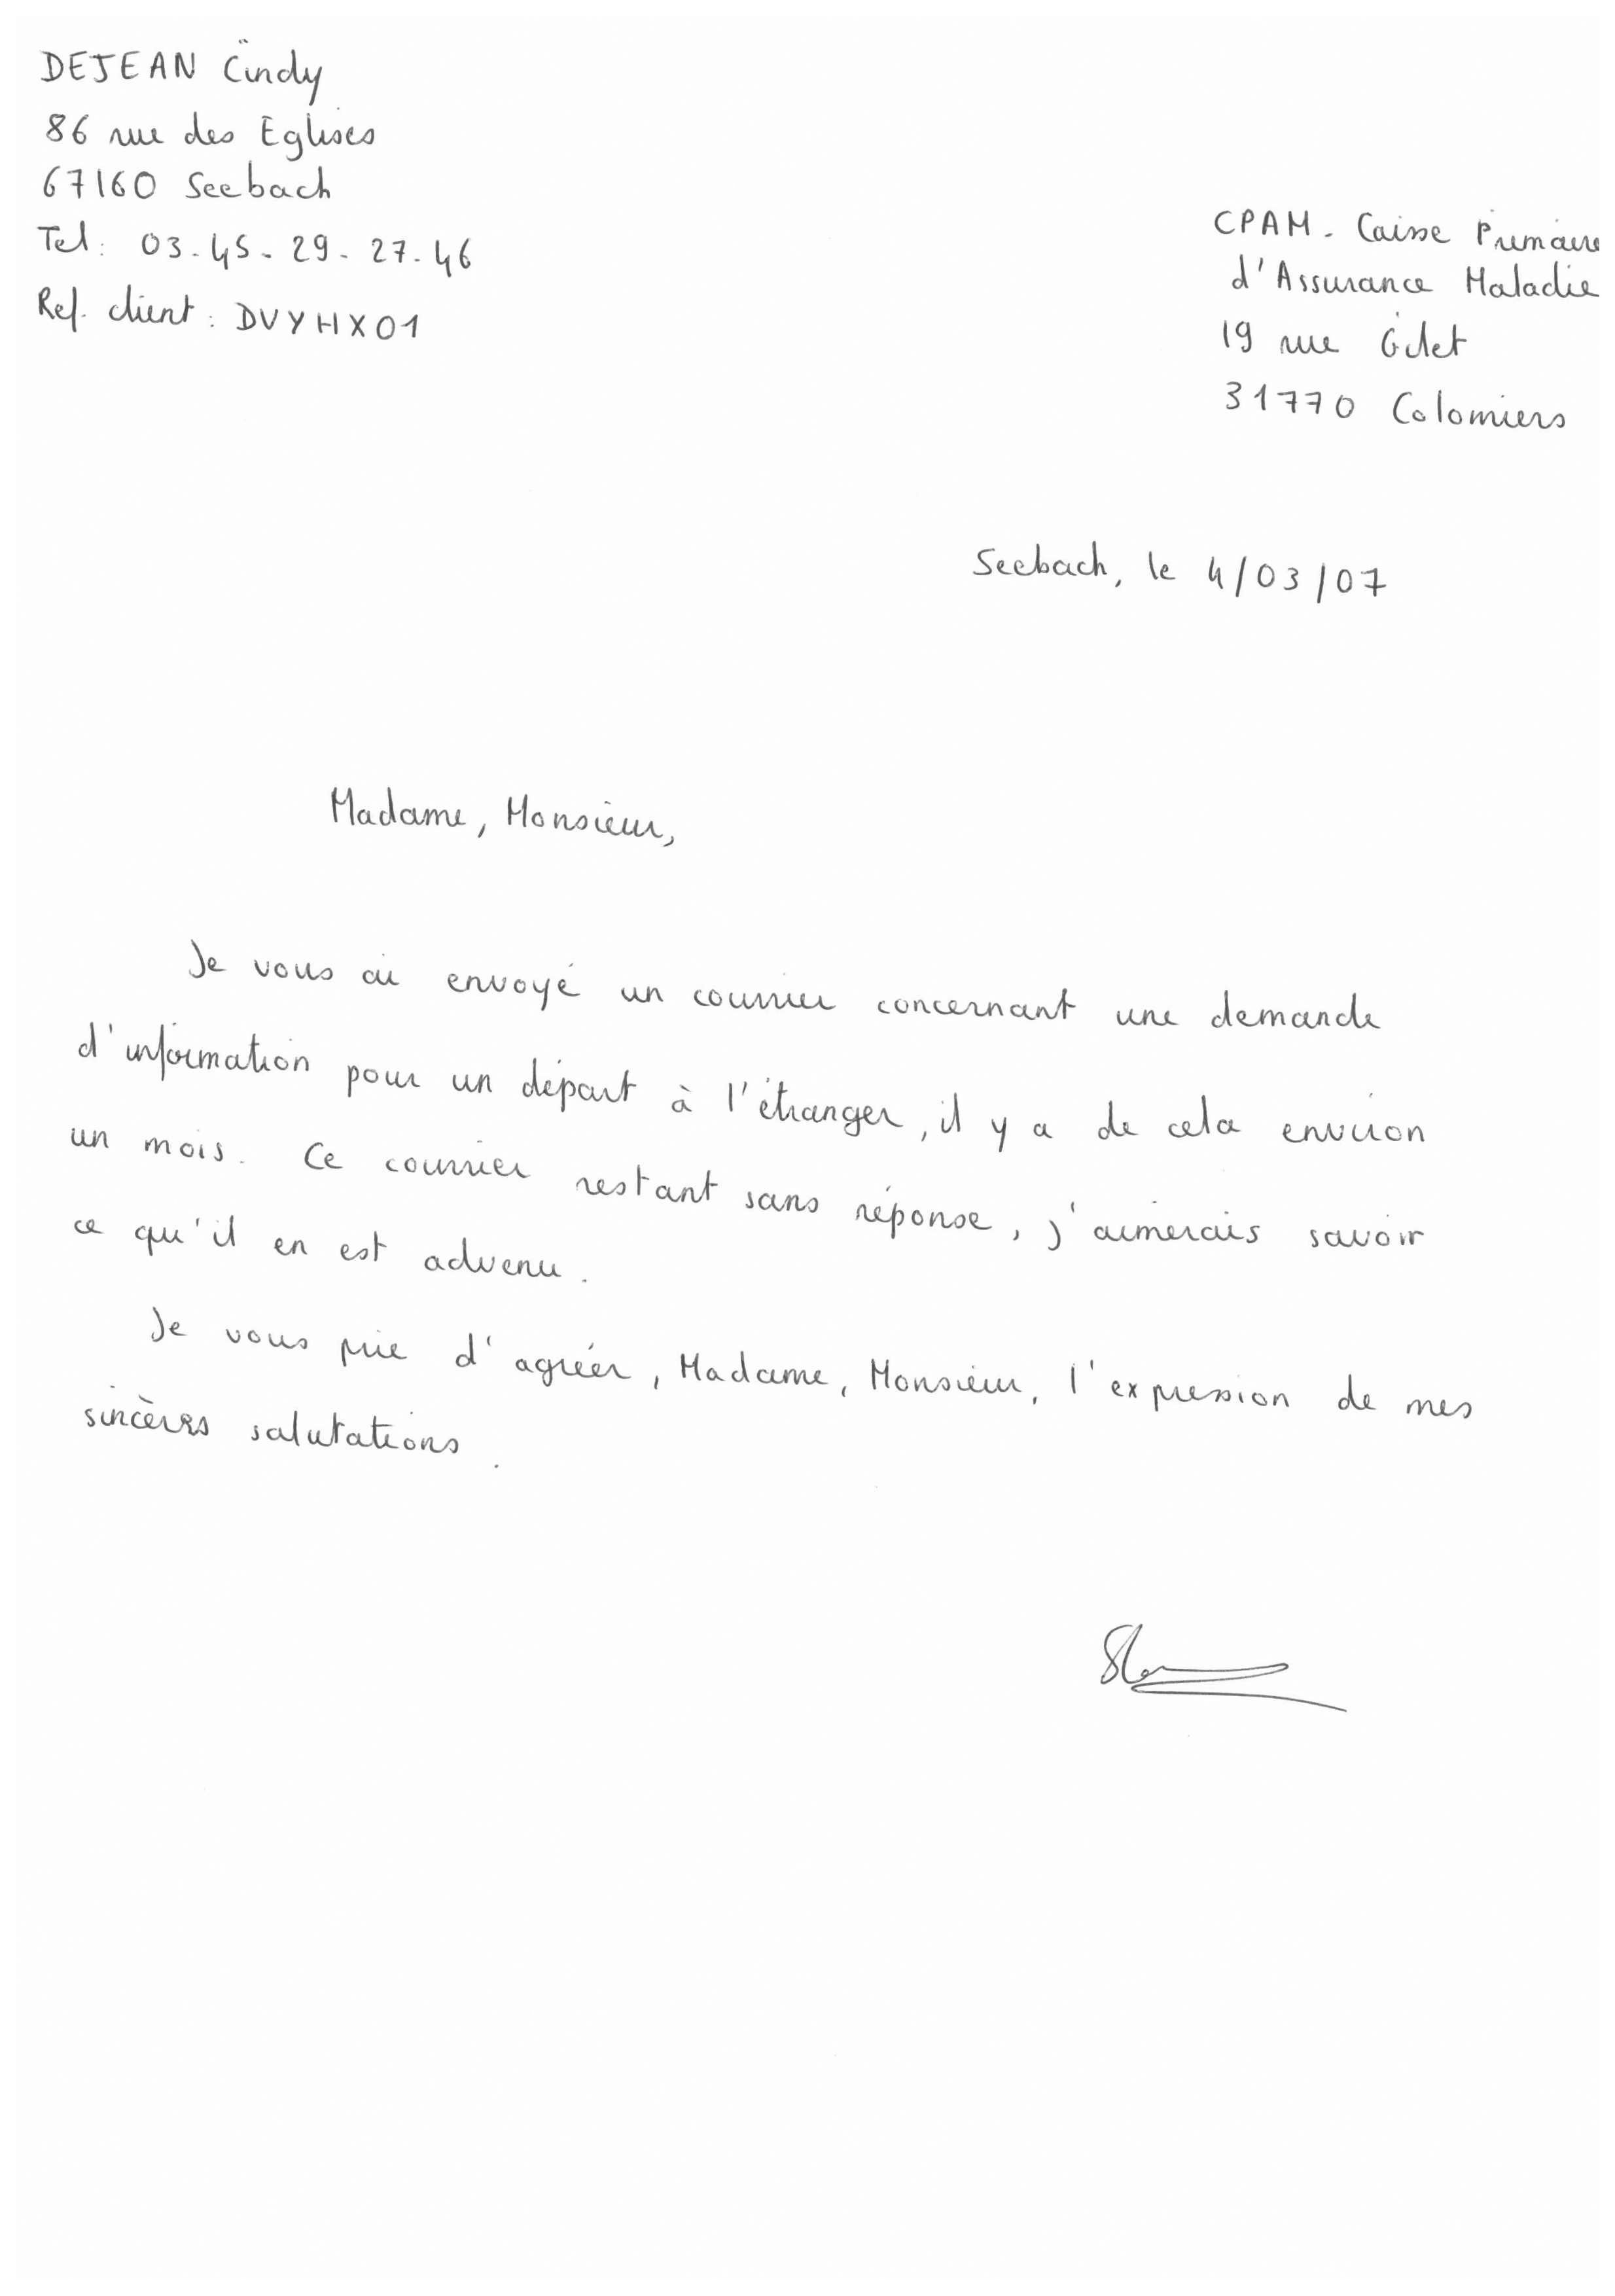 DEJEAN Cindy
86 rue des Eglises
67160 Seebach
Tel : 03-45-29-27-46
Ref. client : DVYHX01
CPAM - Caisse Primaire
d'Assurance Maladie
19 rue Gilet
31770 Colomiers
Seebach, le 4/03/07
Madame, Monsieur,
Je vous ai envoyé un courrier concernant une demande
d'information pour un départ à l'étranger, il y a de cela environ
un mois. Ce courrier restant sans réponse, j'aimerais savoir
ce qu'il en est advenu.
Je vous prie d'agréer, Madame, Monsieur, l'expression de mes
sincères salutations.